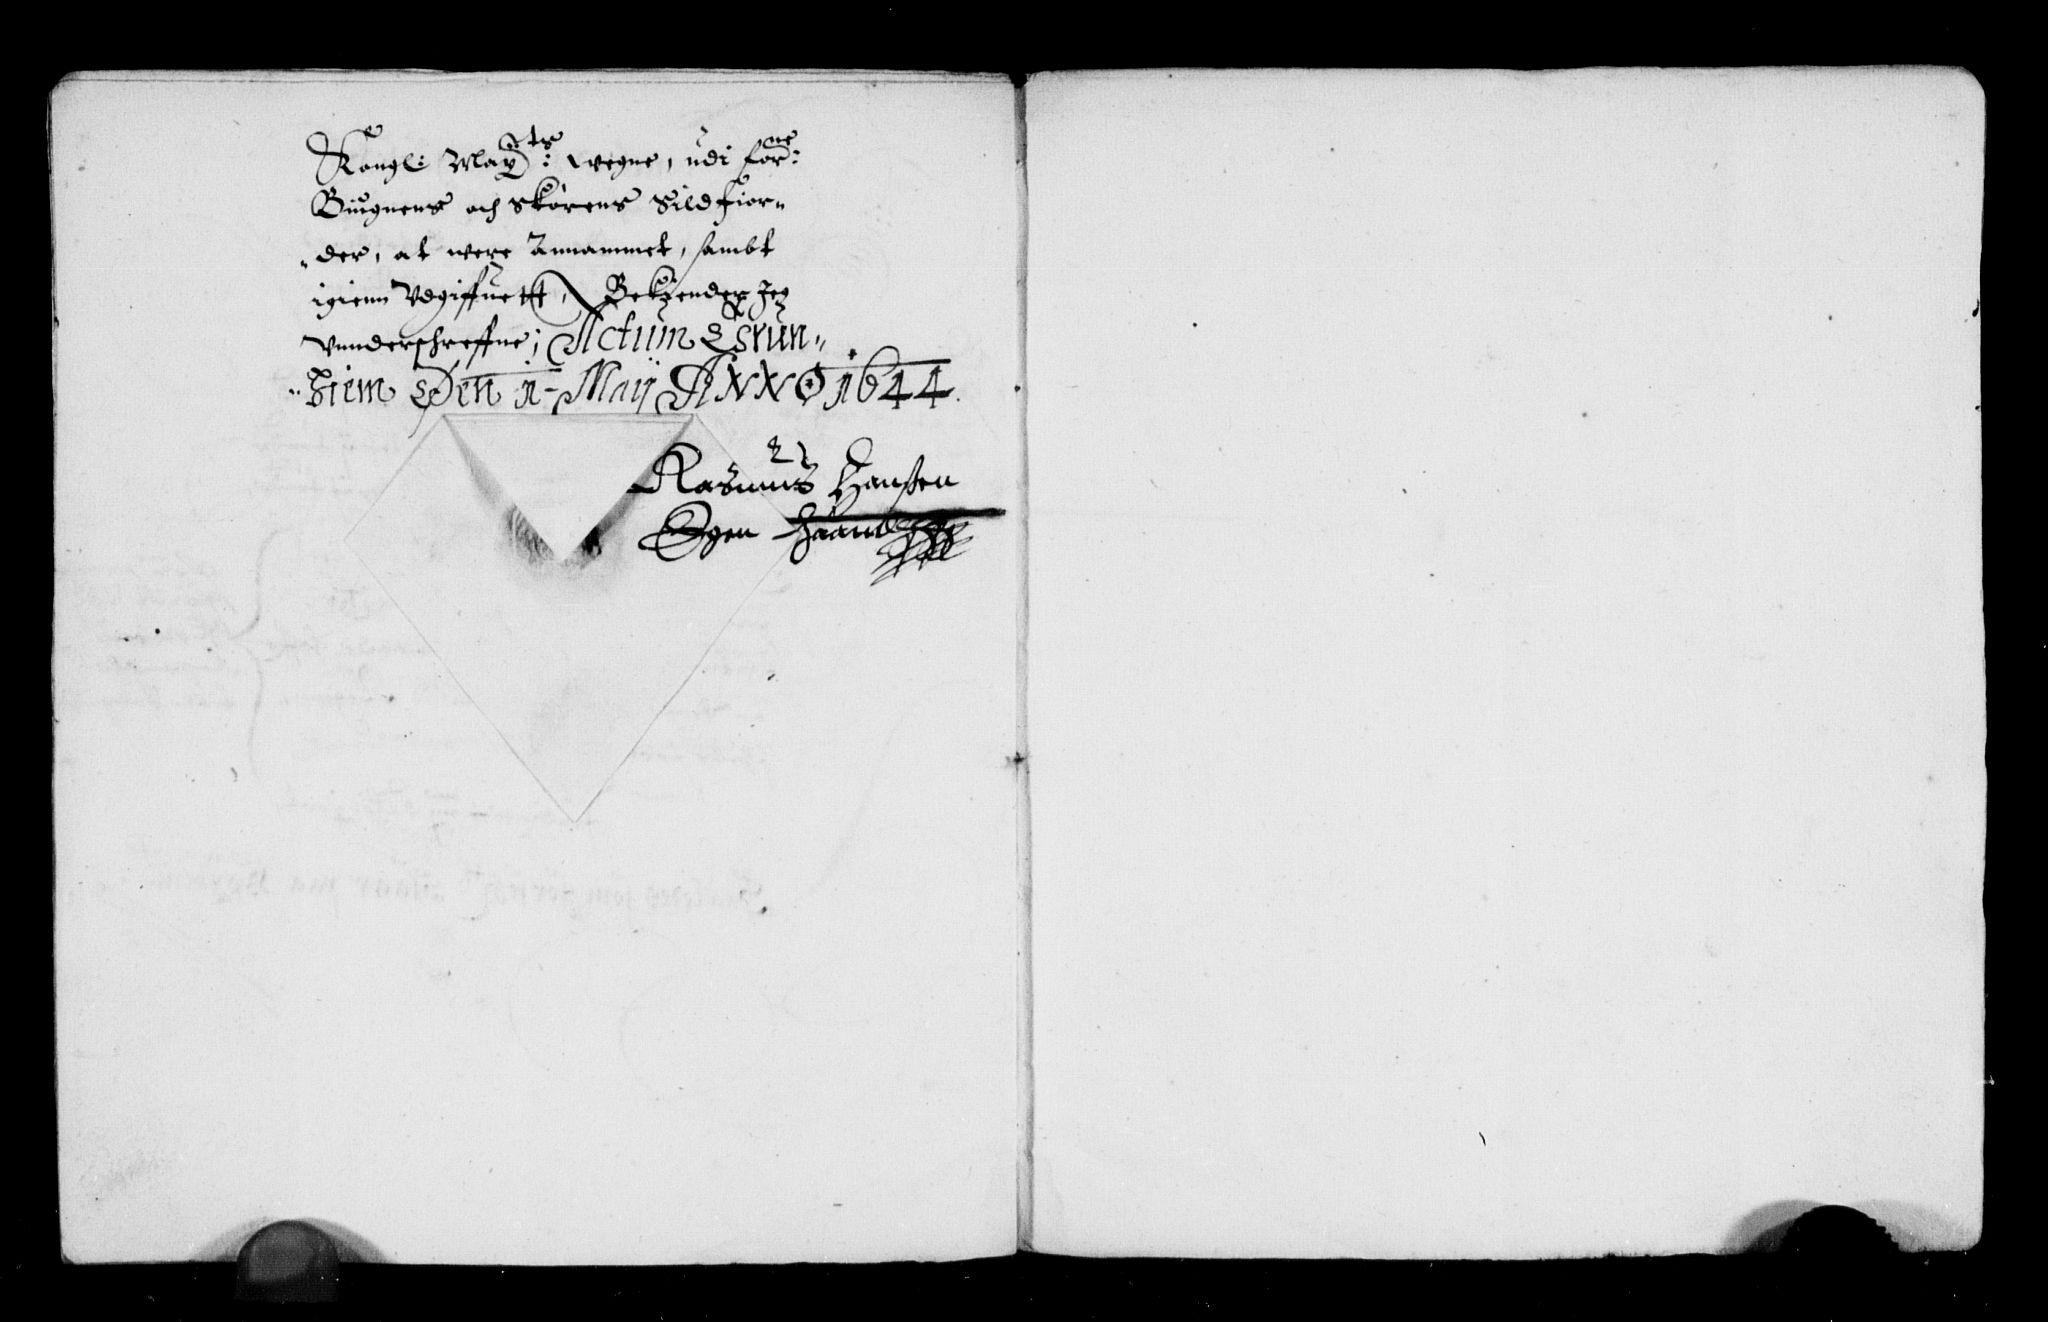 Kongl: May:ts wegne, udi for:ne
Biugnens och Skørens Sildfior„
„der, at were Annammet, sambt
igienn Vdgiffuett, Bekiender Jeg
Vnnderschreffne; Actum Esrun„
„Hiem Den 1 Maij ANNO 1644.
Rasmus Hanßen
Egen Haand